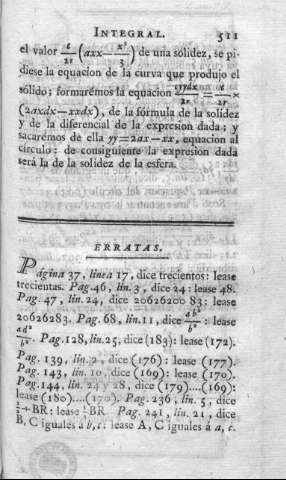 INTEGRAL. 511
el valor c/2r (axx — x³/3) de una solidez, se pi-
diese la equacion de la curva que produjo el
sólido; formarémos la equacion cyydx/2r = c/2r ×
(2axdx—xxdx), de la fórmula de la solidez
y de la diferencial de la expresion dada; y
sacarémos de ella yy=2ax—xx, equacion al
círculo: de consiguiente la expresion dada
será la de la solidez de la esfera.
ERRATAS.
Página 37, linea 17, dice trecientos: lease
trecientas. Pag. 46, lin. 3, dice 24: lease 48.
Pag. 47, lin. 24, dice 20626200 83: lease
20626283. Pag. 68, lin. 11, dice ab²/b²: lease
ad²/b². Pag. 128, lin. 25, dice (183): lease (172).
Pag. 139, lin. 2, dice (176): lease (177).
Pag. 143, lin. 10, dice (169): lease (170).
Pag. 144, lin. 24 y 28, dice (179)....(169):
lease (180)....(170). Pag. 236, lin. 5, dice
BR: lease ½BR. Pag. 241, lin. 21, dice
B, C iguales á b, c: lease A, C iguales á a, c.